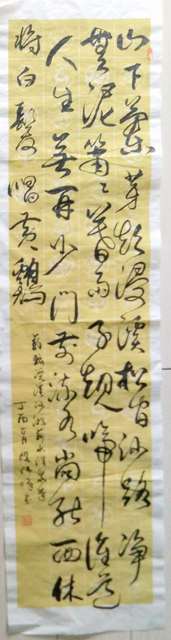 山下蘭芽短浸溪松間沙路淨
無泥蕭〻暮雨子規啼誰道
人生無再少門前流水尚能西休
將白髮唱黃鷄
蘇軾浣溪沙游蘄水清泉寺
丁酉